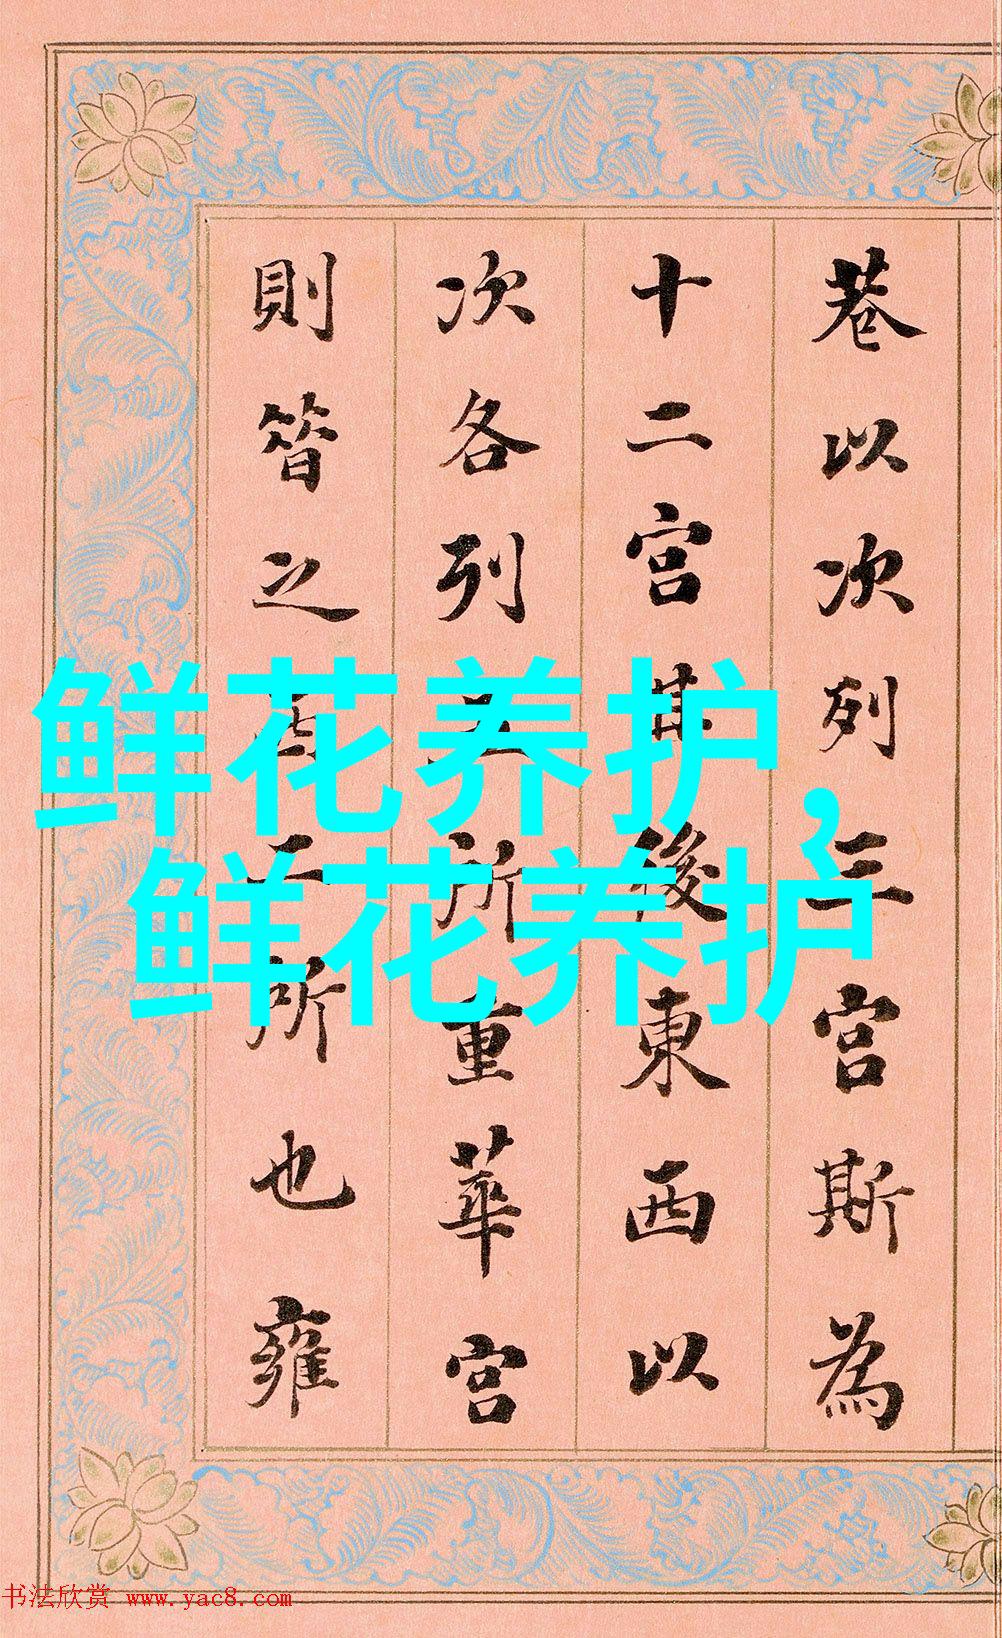 巷以次列三宫斯為
十二宫其後東西以
次各列五所重華宫
則昝之西二所也雍
鲜花养护，
鲜花养护
书法欣赏 www.yac8.com